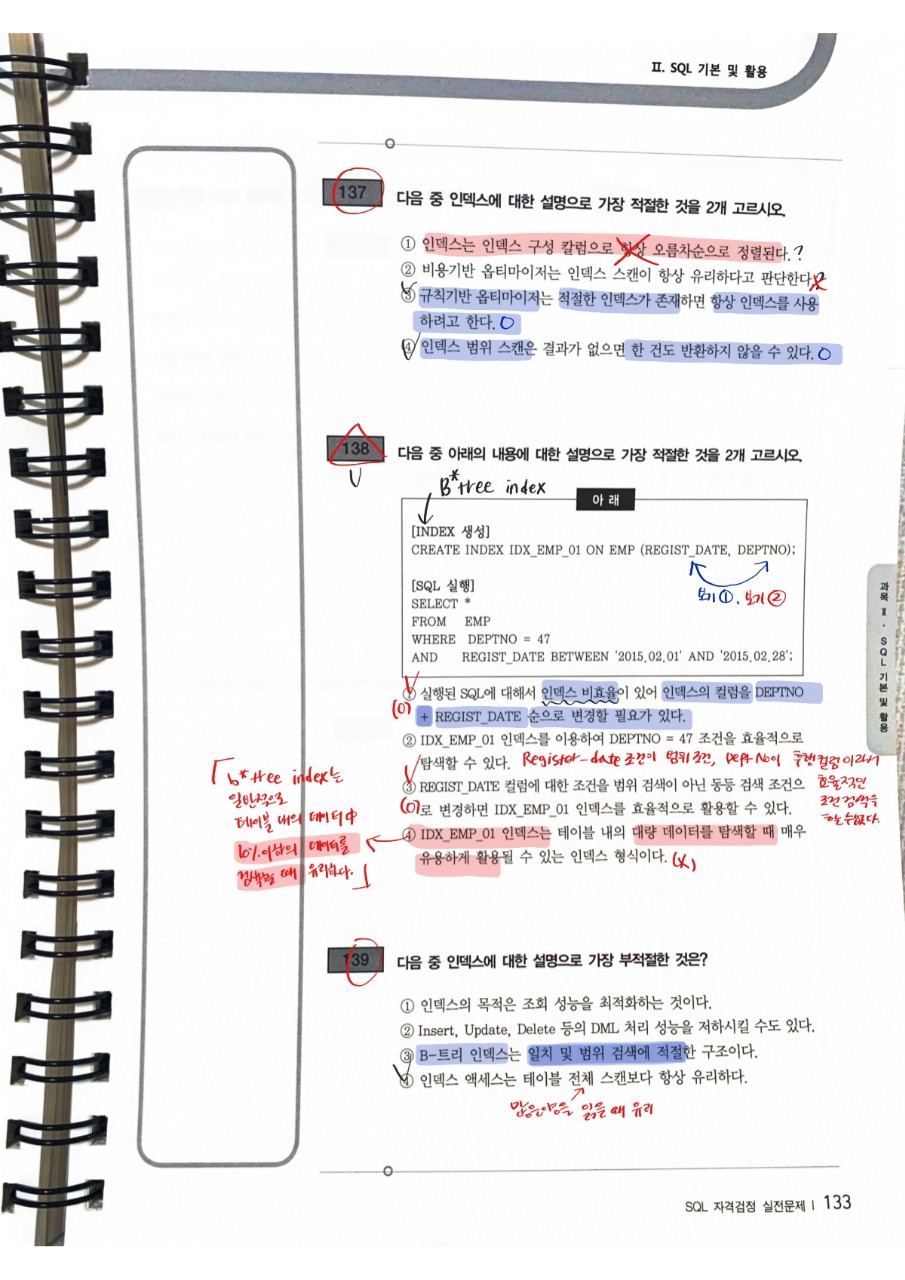 II. SQL 기본 및 활용
137 다음 중 인덱스에 대한 설명으로 가장 적절한 것을 2개 고르시오.
① 인덱스는 인덱스 구성 칼럼으로 항상 오름차순으로 정렬된다. ?
② 비용기반 옵티마이저는 인덱스 스캔이 항상 유리하다고 판단한다.
③ 규칙기반 옵티마이저는 적절한 인덱스가 존재하면 항상 인덱스를 사용
하려고 한다. O
④ 인덱스 범위 스캔은 결과가 없으면 한 건도 반환하지 않을 수 있다. O
138 다음 중 아래의 내용에 대한 설명으로 가장 적절한 것을 2개 고르시오.
B*tree index
아 래
[INDEX 생성]
CREATE INDEX IDX_EMP_01 ON EMP (REGIST_DATE, DEPTNO);
보기①, 보기②
[SQL 실행]
SELECT *
FROM EMP
WHERE DEPTNO = 47
AND REGIST_DATE BETWEEN '2015.02.01' AND '2015.02.28';
① 실행된 SQL에 대해서 인덱스 비효율이 있어 인덱스의 컬럼을 DEPTNO
(O) + REGIST_DATE 순으로 변경할 필요가 있다.
② IDX_EMP_01 인덱스를 이용하여 DEPTNO = 47 조건을 효율적으로
탐색할 수 있다. Register-date 조건이 범위조건, DeptNo이 후행컬럼이라서
효율적인
조건검색을
할 수 없다.
③ REGIST_DATE 컬럼에 대한 조건을 범위 검색이 아닌 동등 검색 조건으
(O) 로 변경하면 IDX_EMP_01 인덱스를 효율적으로 활용할 수 있다.
④ IDX_EMP_01 인덱스는 테이블 내의 대량 데이터를 탐색할 때 매우
유용하게 활용될 수 있는 인덱스 형식이다. (X)
「b*tree index는
일반적으로
테이블 내의 데이터中
10%이하의 데이터를
검색할 때 유리하다.」
139 다음 중 인덱스에 대한 설명으로 가장 부적절한 것은?
① 인덱스의 목적은 조회 성능을 최적화하는 것이다.
② Insert, Update, Delete 등의 DML 처리 성능을 저하시킬 수도 있다.
③ B-트리 인덱스는 일치 및 범위 검색에 적절한 구조이다.
④ 인덱스 액세스는 테이블 전체 스캔보다 항상 유리하다.
많은양을 읽을 때 유리
과목 II. SQL 기본 및 활용
SQL 자격검정 실전문제 | 133